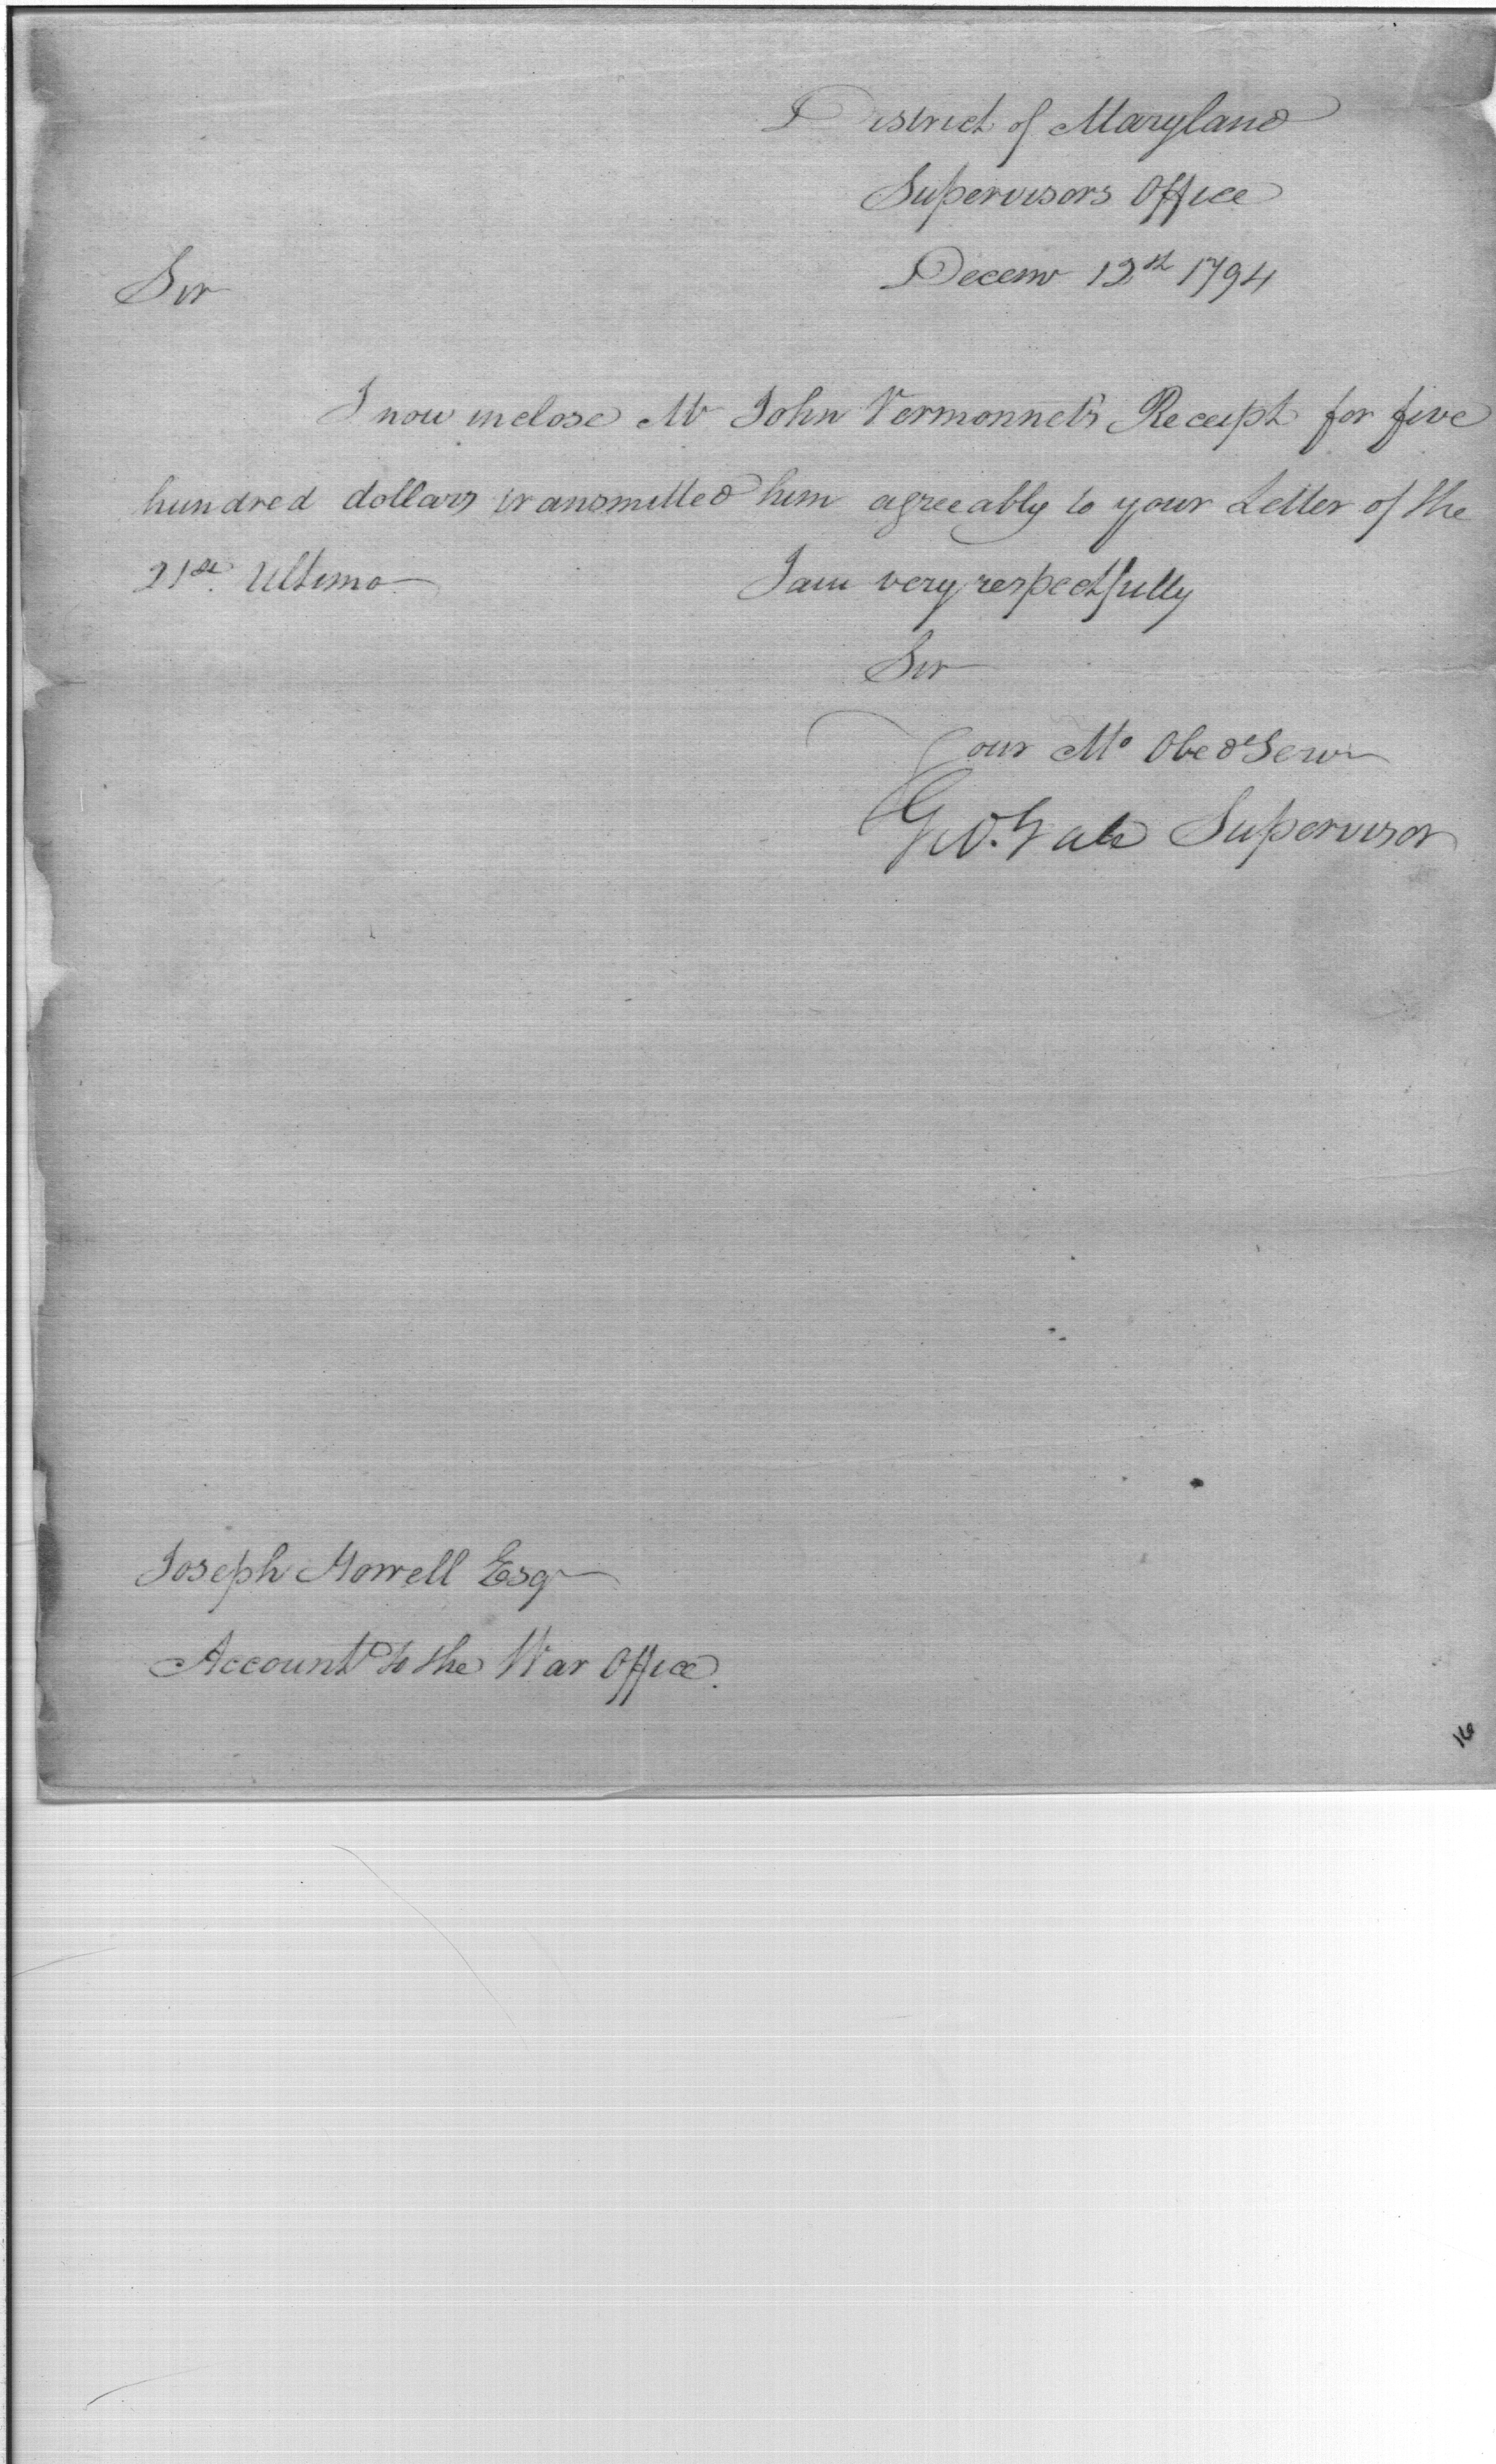 District of Maryland
Supervisors Office
Decemr 12th 1794
Sir
I now inclose Mr John Vermonnet's Receipt for five
hundred dollars transmitted him agreeably to your Letter of the
21st Ultimo
I am very respectfully
Sir
Your Mo Obedt Serv
Geo. Gale Supervisor
Joseph Howell Esqr
Accountt to the War Office.
16